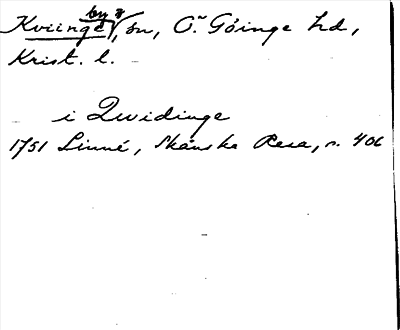 Kviinge by, sn, Ö. Göinge hd,
Krist. l.
i Qwidinge
1751 Linné, Skånska Resa, s. 406